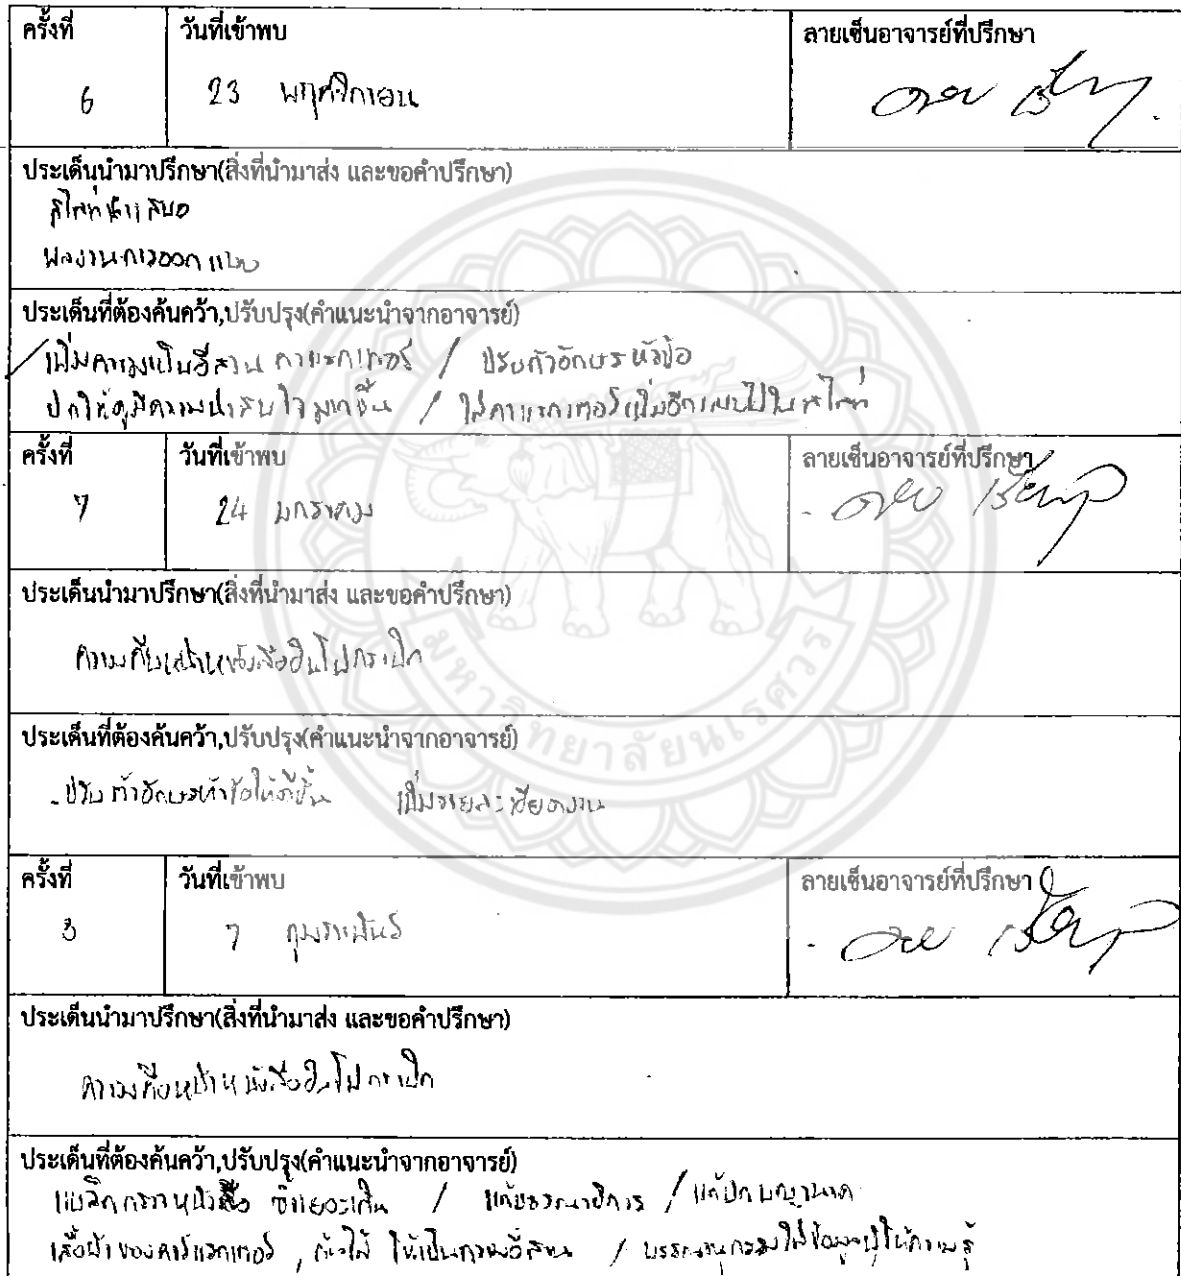 ครั้งที่ วันที่เข้าพบ ลายเซ็นอาจารย์ที่ปรึกษา
6 23 พฤศจิกายน
ประเด็นนำมาปรึกษา(สิ่งที่นำมาส่ง และขอคำปรึกษา)
สไลด์นำเสนอ
ผลงานการออกแบบ
ประเด็นที่ต้องค้นคว้า,ปรับปรุง(คำแนะนำจากอาจารย์)
เพิ่มความเป็นอีสาน คาแรคเตอร์ / ปรับตัวอักษรหัวข้อ
ปกให้ดูมีความน่าสนใจมากขึ้น / ใส่คาแรคเตอร์เพิ่มอีก ไปในสไลด์
ครั้งที่ วันที่เข้าพบ ลายเซ็นอาจารย์ที่ปรึกษา
7 24 มกราคม
ประเด็นนำมาปรึกษา(สิ่งที่นำมาส่ง และขอคำปรึกษา)
ความคืบหน้าหนังสืออินโฟกราฟิก
มหาวิทยาลัยนเรศวร
ประเด็นที่ต้องค้นคว้า,ปรับปรุง(คำแนะนำจากอาจารย์)
- ปรับตัวอักษรหัวข้อให้ดีขึ้น เพิ่มรายละเอียดงาน
ครั้งที่ วันที่เข้าพบ ลายเซ็นอาจารย์ที่ปรึกษา
7 กุมภาพันธ์
ประเด็นนำมาปรึกษา(สิ่งที่นำมาส่ง และขอคำปรึกษา)
ความคืบหน้าหนังสืออินโฟกราฟิก
ประเด็นที่ต้องค้นคว้า,ปรับปรุง(คำแนะนำจากอาจารย์)
หนังสือ / แก้บรรณาธิการ / แก้ปก
เสื้อผ้าของคาร์แรกเตอร์ , ให้เป็นความอีสาน / บรรณานุกรมใส่ข้อมูลผู้ให้ความรู้